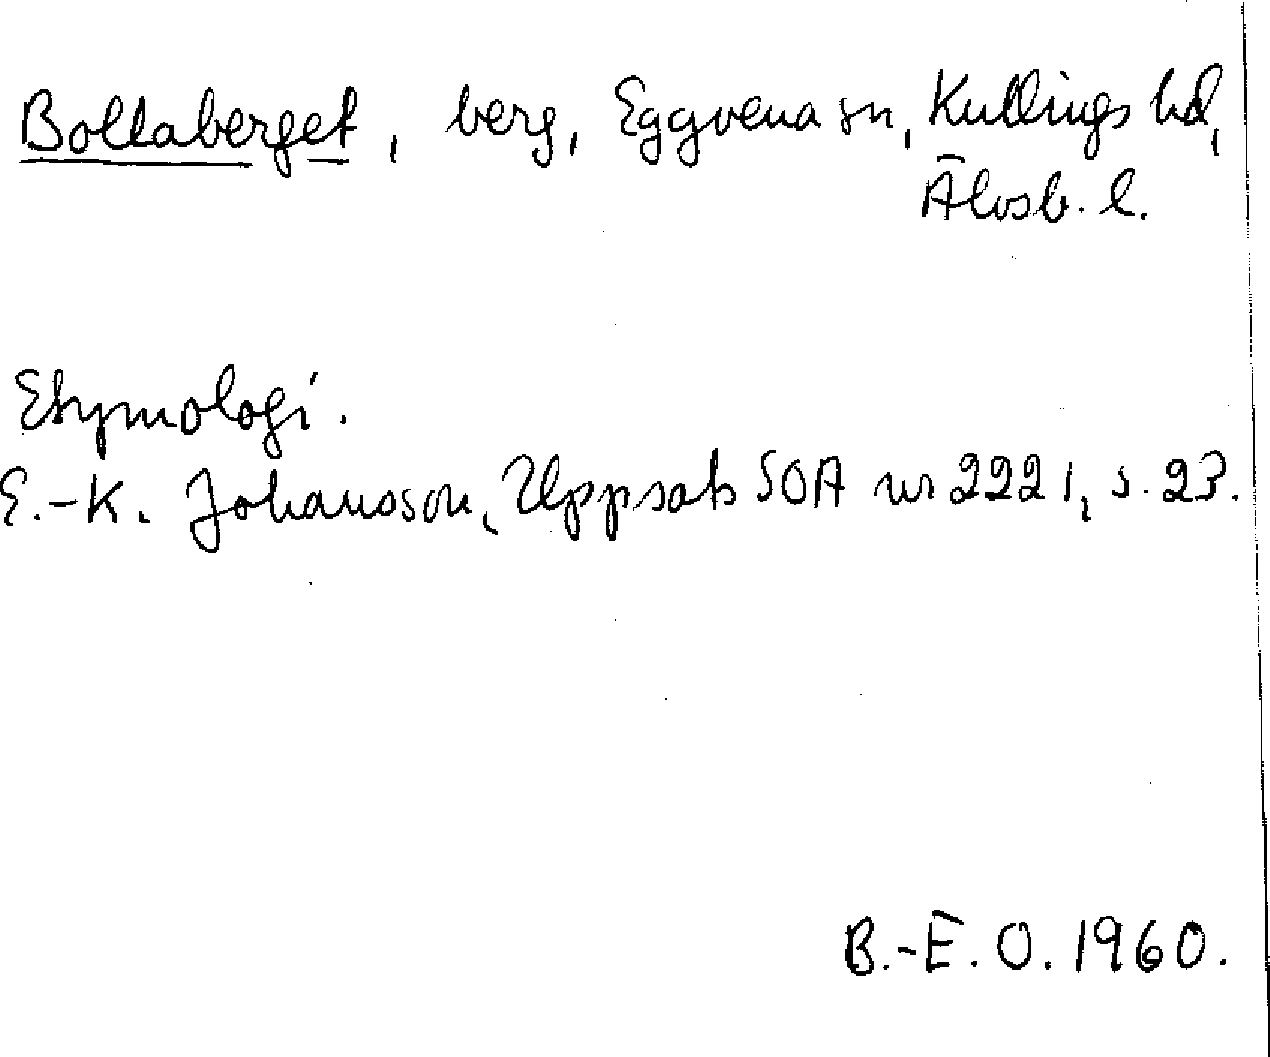 Bollaberget, berg, Eggvena sn, Kullings hd,
Älvsb. l.
Etymologi.
E.-K. Johansson, Uppsats SOA nr 2221, s. 23.
B.-E. O. 1960.